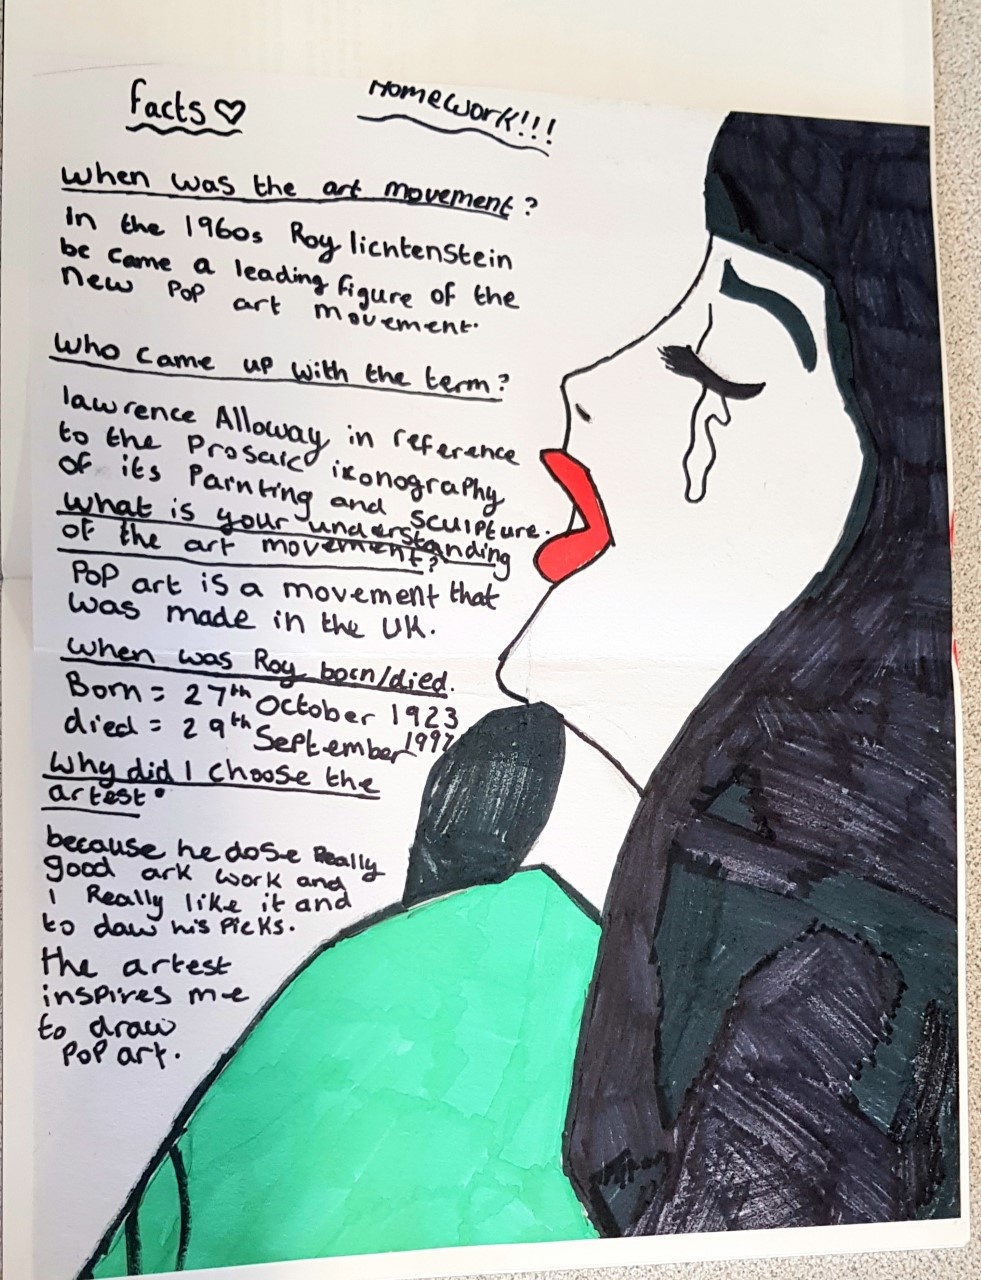 facts♡
Homework!!!
when was the art movement?
In the 1960s Roy lichtenstein
be came a leading figure of the
new Pop art movement.
who came up with the term?
lawrence Alloway in reference
to the Prosaic ikonography
of its Parnting and sculpture.
what is your understanding
of the art movement?
Pop art is a movement that
was made in the UK.
when was Roy born/died.
Born = 27th October 1923
died = 29th September 1997
why did I choose the
artest.
because he dose Really
good ark work and
I Really like it and
to daw his Picks.
the artest
inspires me
to draw
Pop art.